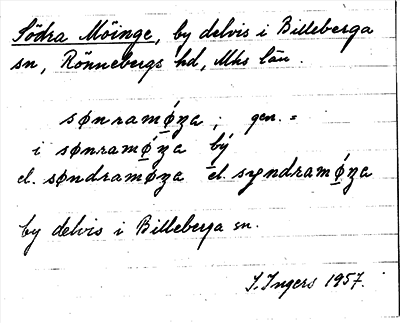 Södra Möinge, by delvis i Billeberga
sn, Rönnebergs hd, Mhs län.
sønramǿŋa; gen. =
i sønramǿŋa bý
el. søndramøŋa el. syndramǿŋa
by delvis i Billeberga sn.
I. Ingers 1957.